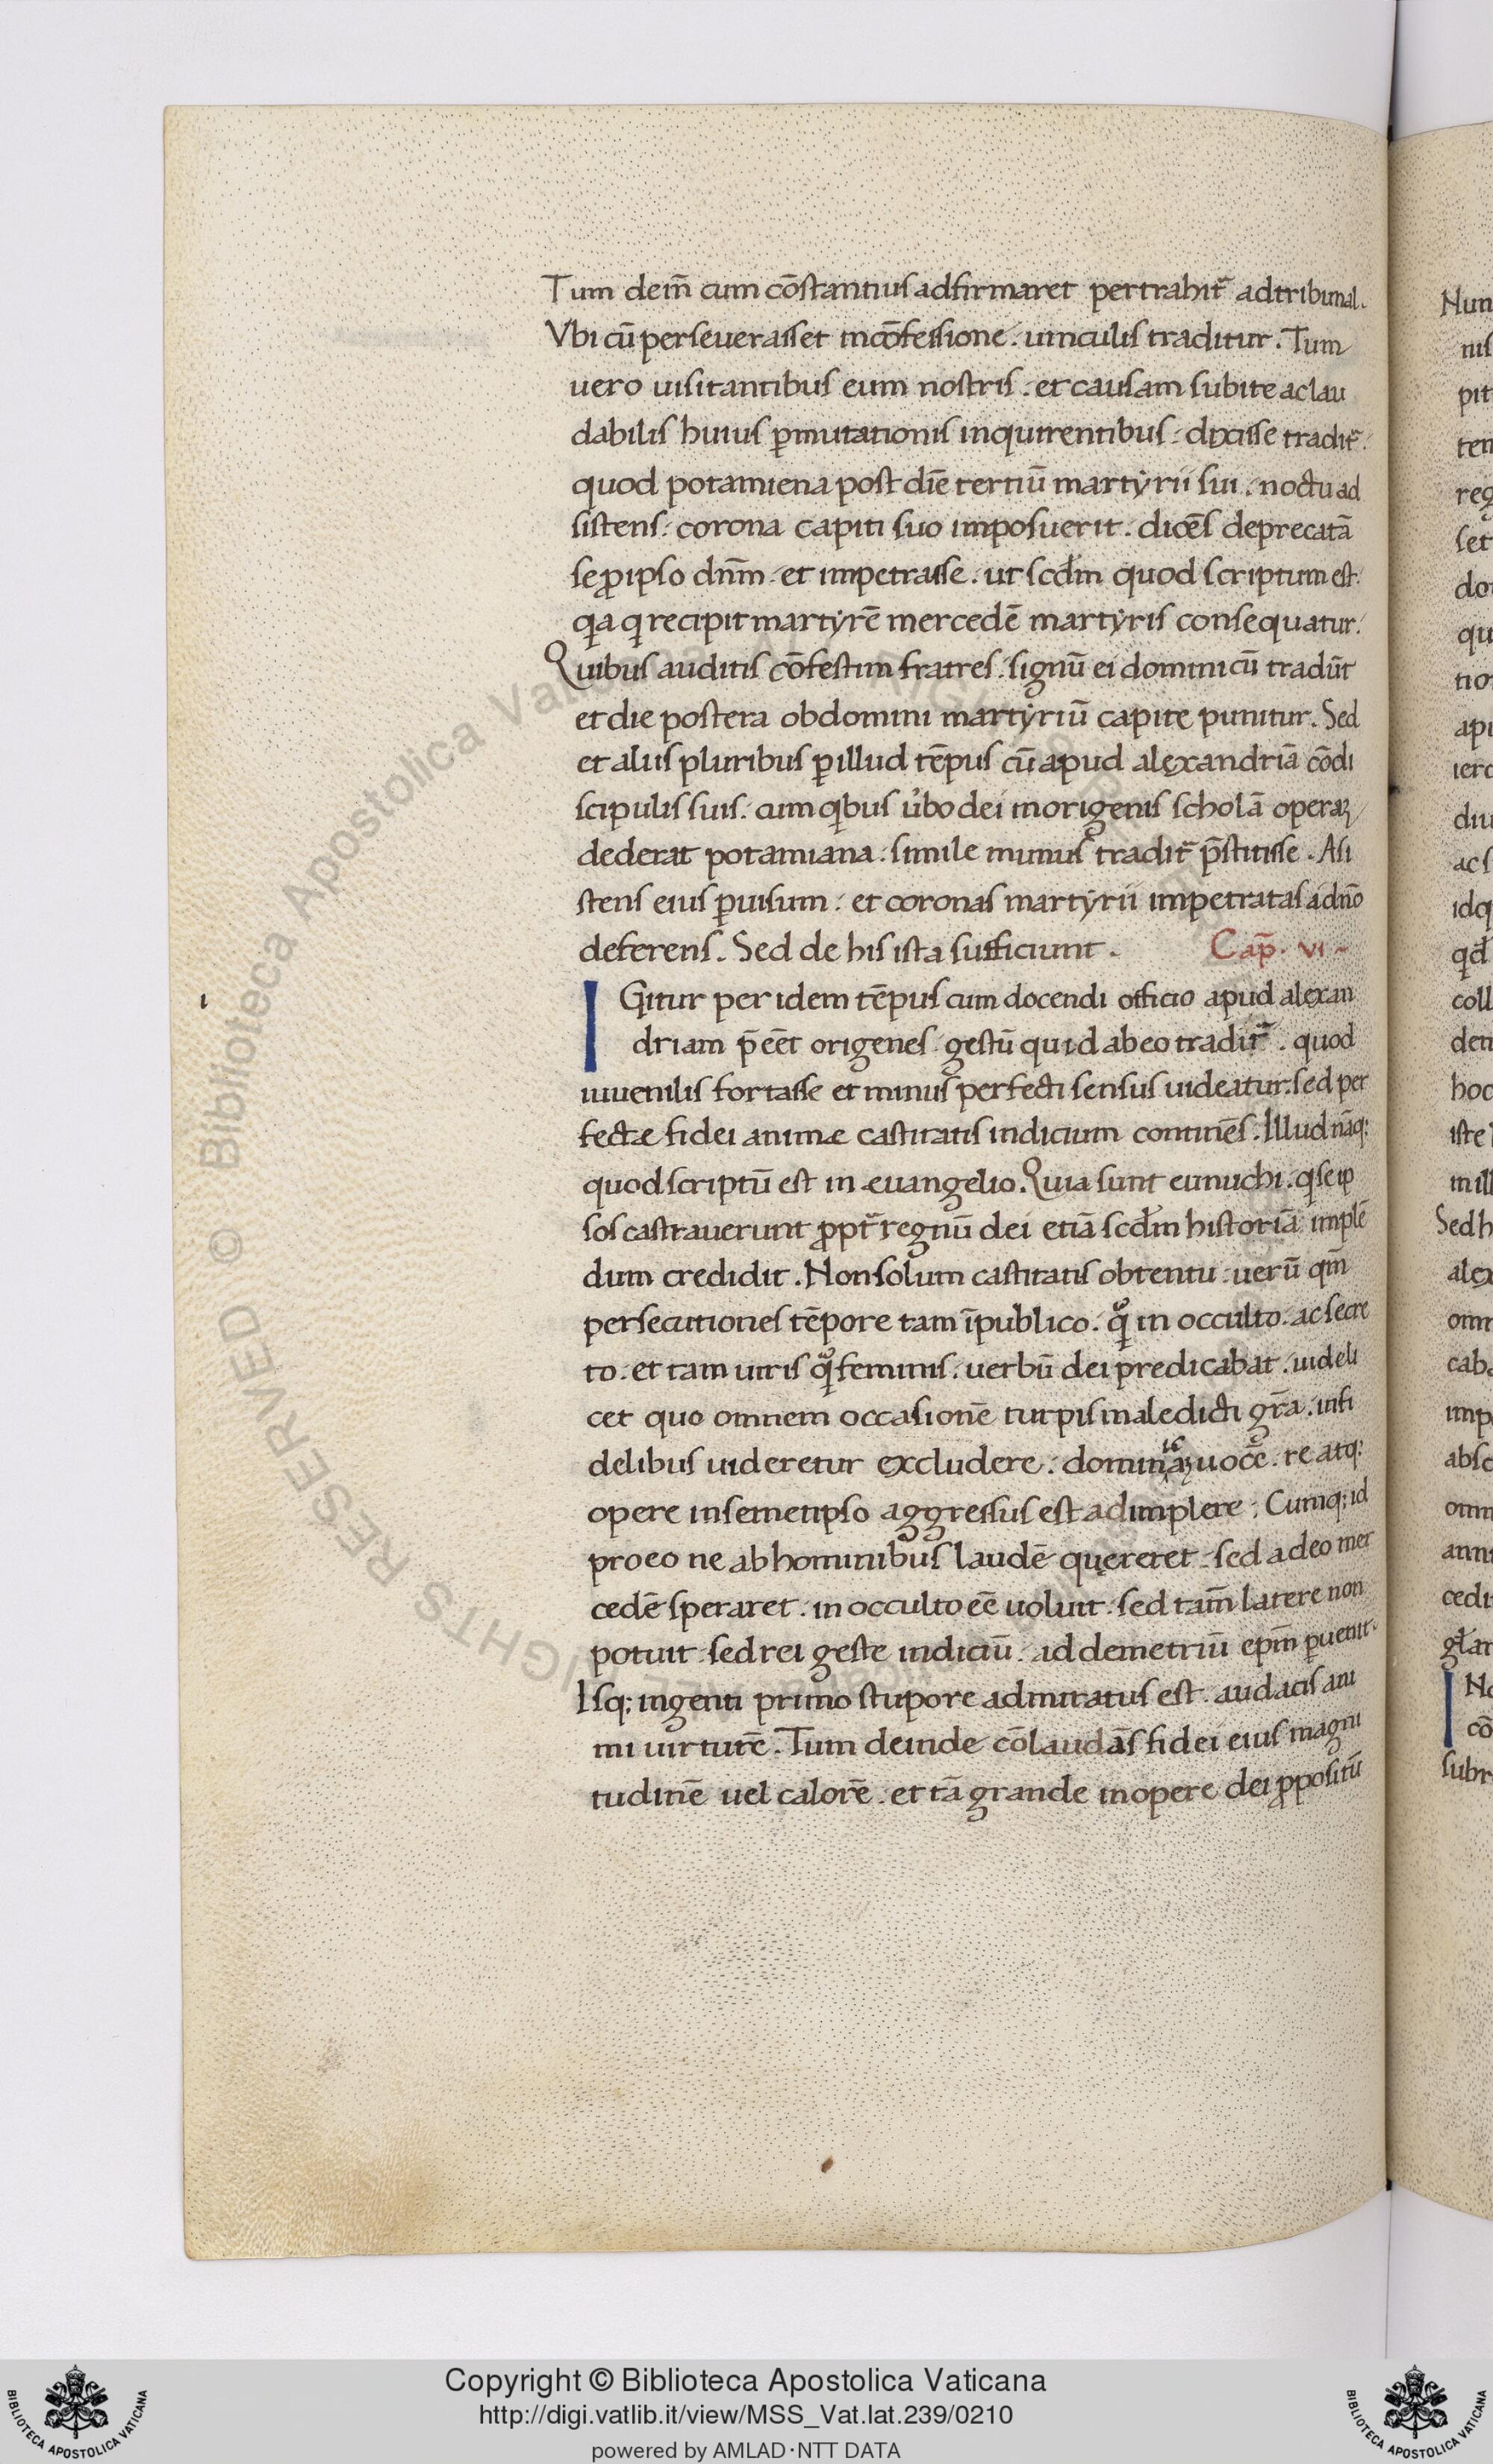 Tum dem̄ cum cōstantius adfirmaret pertrahit᷑ ad tribunal.
Vbi cū perseuerasset in cōfessione. uinculis traditur. Tum
uero uisitantibus eum nostris. et causam subite ac lau
dabilis huius ꝑmutationis inquirentibus. dixisse tradit᷑.
quod potamiena post diē tertiū martyrii sui. noctu ad
sistens. corona capiti suo imposuerit. dicēs deprecatā
se ꝓ ipso dnm̄. et impetrasse. ut scdm̄ quod scriptum est.
qa q recipit martyrē mercedē martyris consequatur.
Quibus auditis cōfestim fratres. signū ei dominicū tradūt
et die postera ob domini martyriū capite punitur. Sed
et aliis pluribus ꝑ illud tēpus cū apud alexandriā cōdi
scipulis suis. cum qbus u̓bo dei in origenis scholā operaꝫ
dederat potamiana. simile munus tradit᷑ p̄stitisse. Asi
stens eius ꝑ uisum. et coronas martyrii impetratas a dnō
deferens. Sed de his ista sufficiunt. Cap̄. vi
ı
IGitur per idem tēpus cum docendi officio apud alexan
driam p̄eēt origenes gestū quid ab eo tradit᷑. quod
iuuenilis fortasse et minus perfecti sensus uideatur. sed per
fectæ fidei animæ castitatis indicium continēs. Illud nāq;
quod scriptū est in euangelio. Quia sunt eunuchi. q se ip
sos castrauerunt ꝓpt᷑ regnū dei etiā scdm̄ historiā implē
dum credidit. Non solum castitatis obtentu. uerū qm̄
persecutiones tēpore tam ī publico. qͦ in occulto. ac secre
to. et tam uiris qͦ feminis. uerbū dei predicabat. uideli
cet quo omnem occasionē turpis maledicti gr̄a. infi
delibus uideretur excludere. domināꝫ uocē. re atq;
opere in semetipso aggressus est adimplere. Cumq; id
pro eo ne ab hominibus laudē quęreret. sed a deo mer
cedē speraret. in occulto eē uoluit. sed tam̄ latere non
potuit. sed rei geste indiciū. ad demetriū epm̄ ꝑuenit.
Isq; ingenti primo stupore admiratus est. audacis ani
mi uirtutē. Tum deinde cōlaudās fidei eius magni
tudinē uel calorē. et tā grande in opere dei ꝓpositū
Copyright © Biblioteca Apostolica Vaticana
http://digi.vatlib.it/view/MSS_Vat.lat.239/0210
powered by AMLAD·NTT DATA